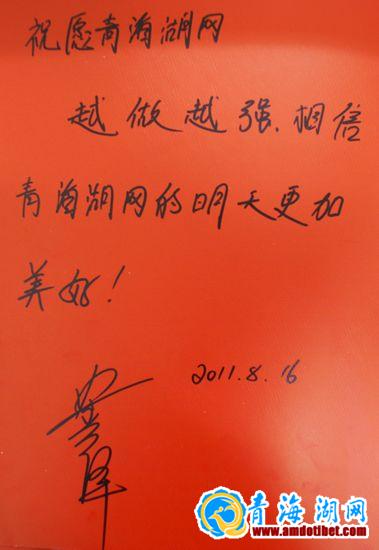 祝愿青海湖网
越做越强、相信
青海湖网的明天更加
美好！
2011.8.16
青海湖网
www.amdotibet.com